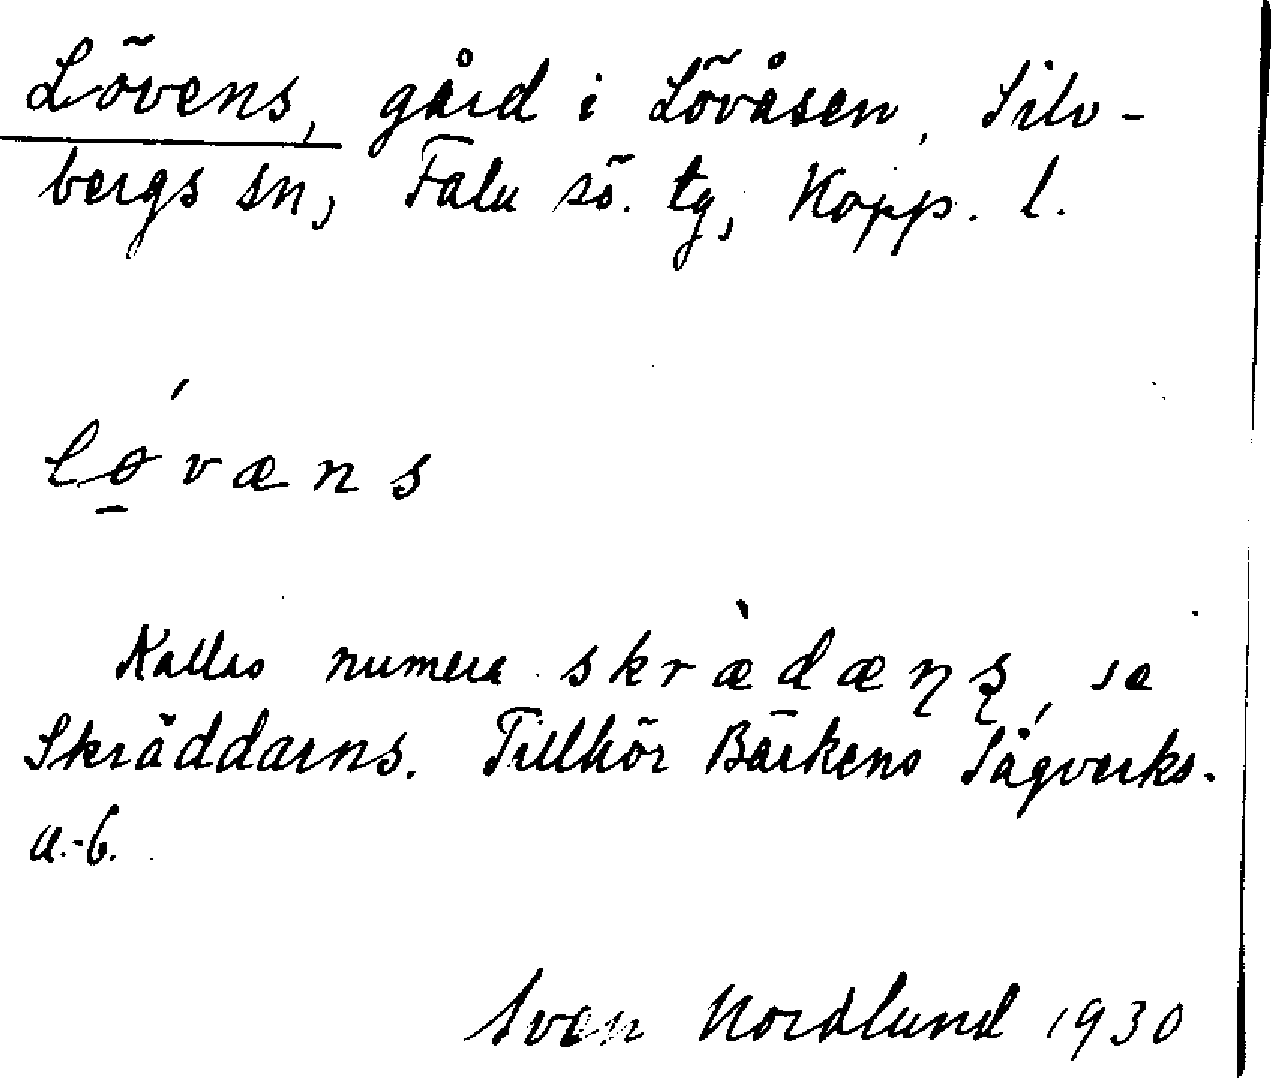 Lövens, gård i Lövåsen, Silv-
bergs sn, Falu sö. tg, Kopp. l.
lǿ̱væns
Kallas numera skræ̀dæn̨s̨, se
Skräddarns. Tillhör Bärkens Sågverks-
a.-b.
Sven Nordlund 1930